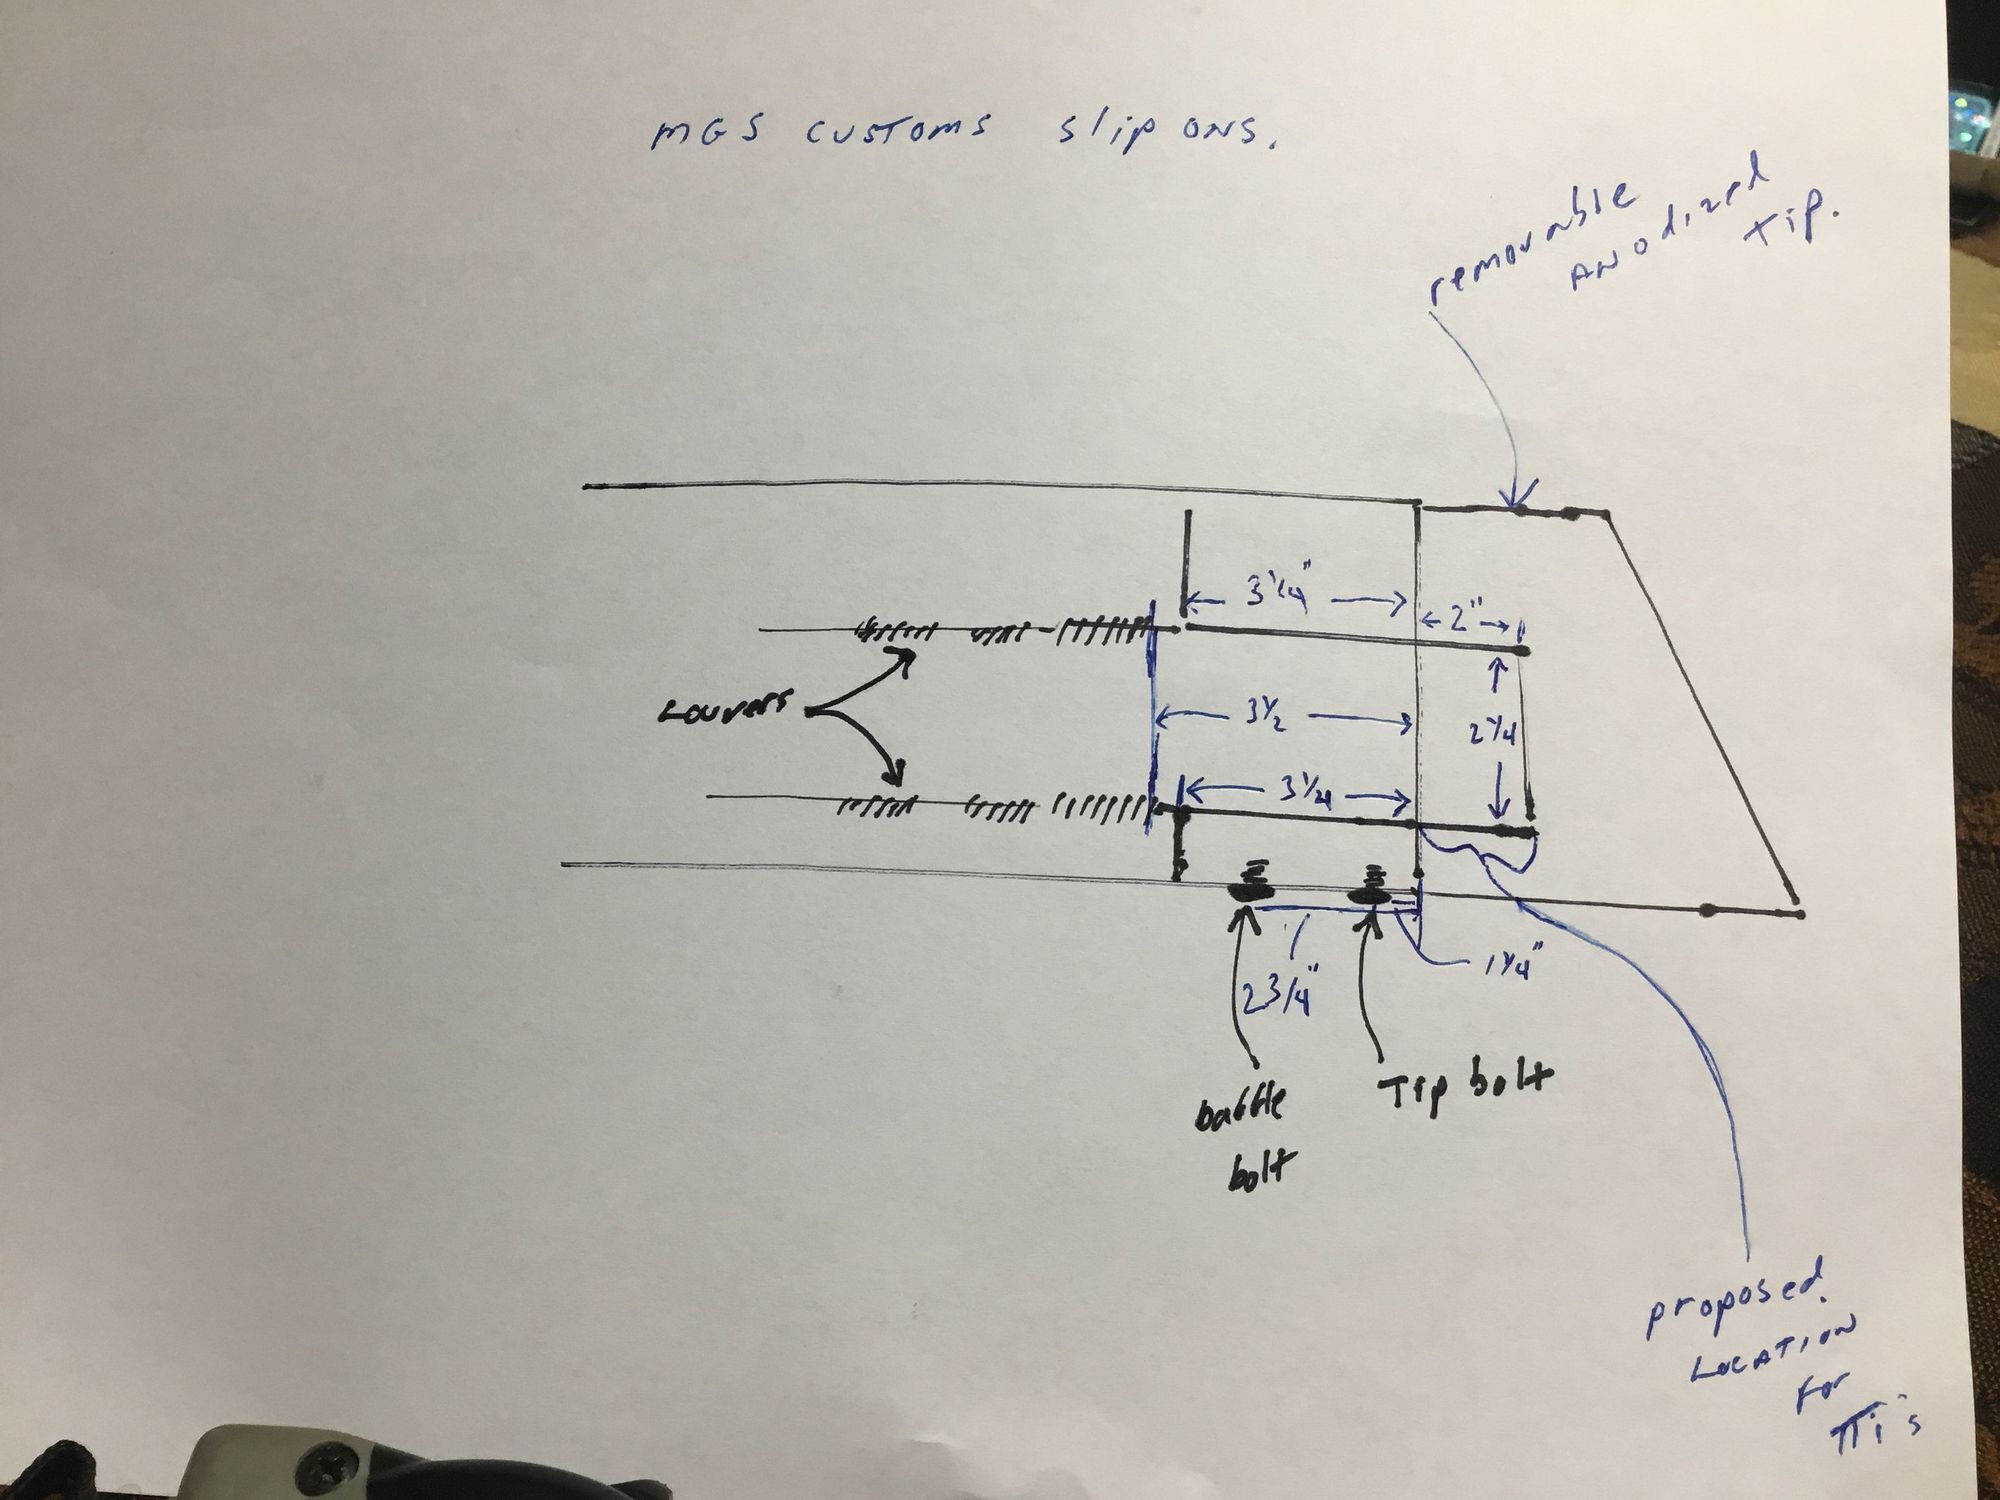 MGS CUSTOMS slip ONS.
removable
ANOdized
Tip.
3 1/4"
2"
Louvers
3 1/2
2 1/4
3 1/4
1 1/4"
2 3/4"
baffle
bolt
Tip bolt
proposed.
LOCATION
for